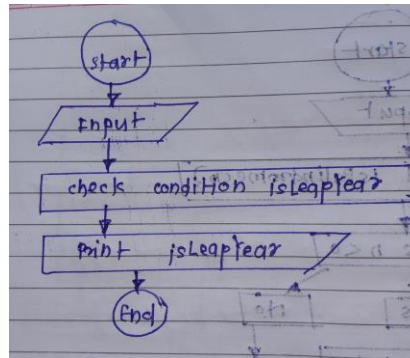 start
Input
check condition isLeapYear
print isLeapYear
End